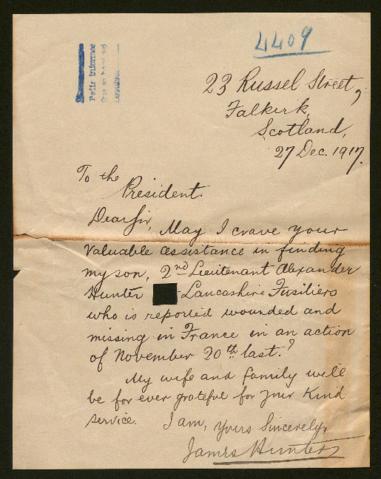 4409
23 Russel Street,
Falkirk,
Scotland,
27 Dec. 1917.
To the
President.
Dear Sir, May I crave your
valuable assistance in finding
my son, 2nd Lieutenant Alexander
Hunter Lancashire Fusiliers
who is reported wounded and
missing in France in an action
of November 20th last?
My wife and family will
be for ever grateful for your kind
service. I am, yours Sincerely,
James Hunter